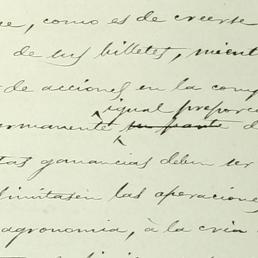 ue, como es de creerse
de sus billetes, mient
de acciones en la comp
igual proporc
ermanente su parte d
tas ganancias deben ser
limitasen las operacione
agronomia, à la cria